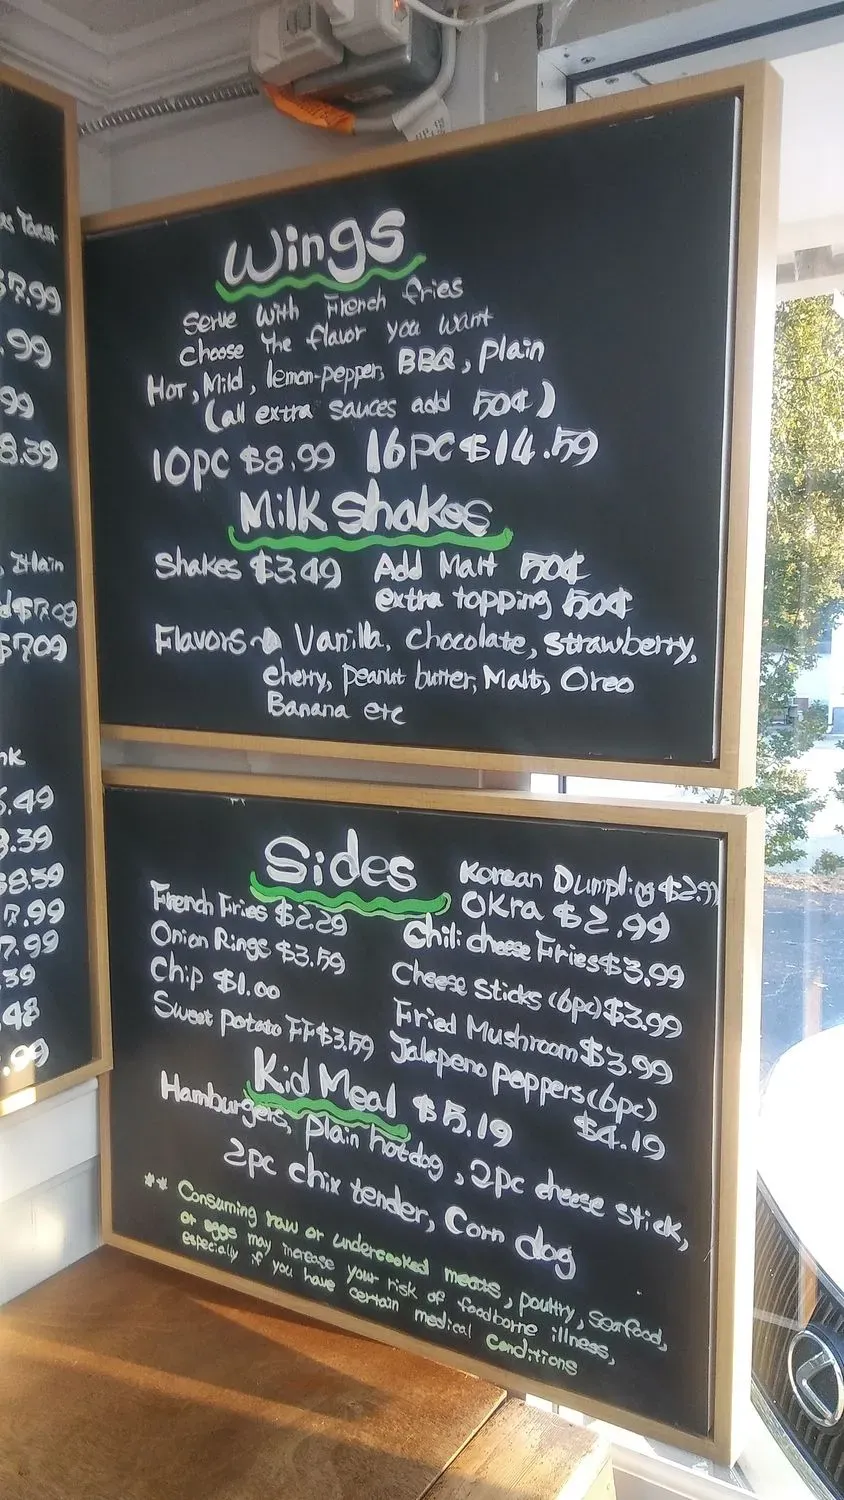 as Toast
$7.99
.99
99
8.39
$7.09
$7.09
nk
.49
.39
8.59
7.99
7.99
.39
.48
.99
Wings
Serve with French fries
choose the flavor you want
Hot, Mild, lemon-pepper, BBQ, plain
(all extra sauces add 50¢)
10PC $8.99 16PC $14.59
Milk shakes
Shakes $3.49 Add Malt 50¢
extra topping 50¢
Flavors → Vanilla, chocolate, strawberry,
cherry, peanut butter, Malt, Oreo
Banana etc
Sides
French Fries $2.29
Onion Rings $3.59
Chip $1.00
Sweet potato FF $3.59
Korean Dumpling $2.99
OKra $2.99
Chili cheese Fries $3.99
Cheese sticks (6pc) $3.99
Fried Mushroom $3.99
Jalapeno peppers (6pc)
$4.19
Kid Meal $5.19
Hamburgers, plain hotdog, 2pc cheese stick,
2pc chix tender, Corn dog
** Consuming raw or undercooked meats, poultry, seafood,
or eggs may increase your risk of foodborne illness,
especially if you have certain medical conditions